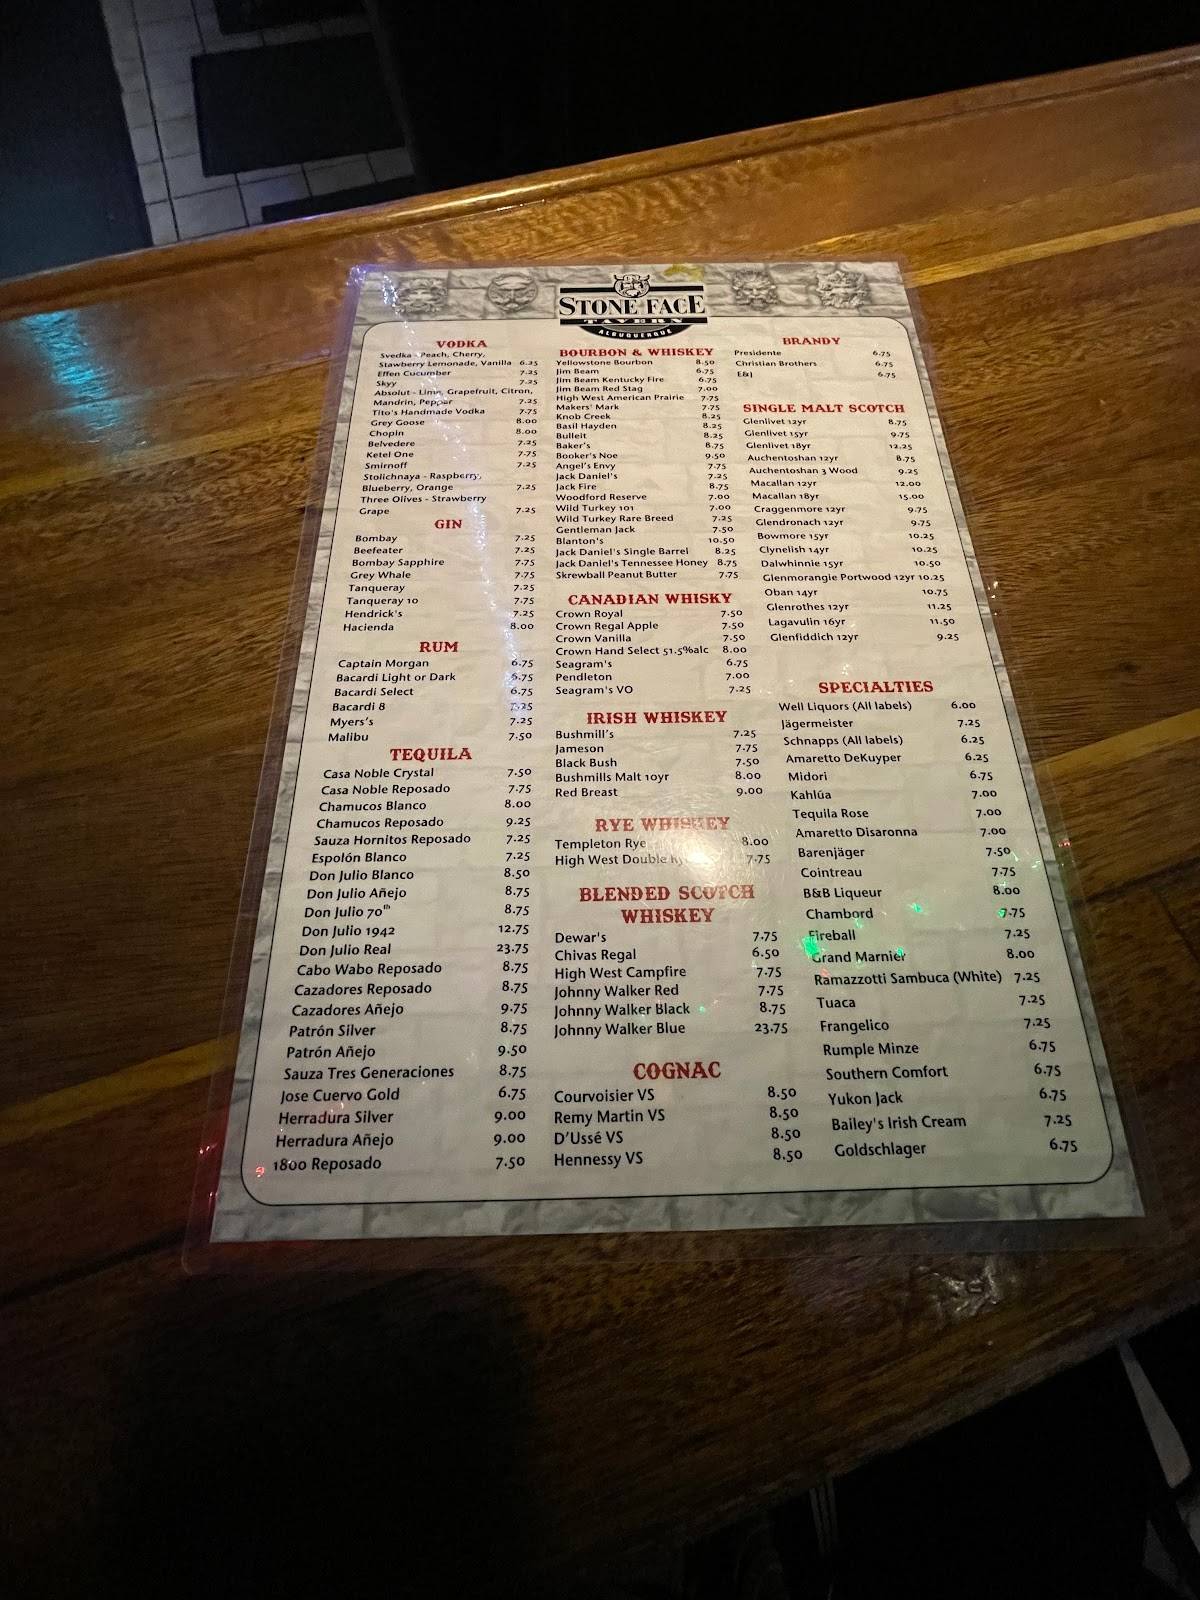 STONE FACE
TAVERN
ALBUQUERQUE
VODKA
Svedka - Peach, Cherry,
Stawberry Lemonade, Vanilla 6.25
Effen Cucumber 7.25
Skyy 7.25
Absolut - Lime, Grapefruit, Citron,
Mandrin, Pepper 7.25
Tito's Handmade Vodka 7.75
Grey Goose 8.00
Chopin 8.00
Belvedere 7.25
Ketel One 7.75
Smirnoff 7.25
Stolichnaya - Raspberry,
Blueberry, Orange 7.25
Three Olives - Strawberry
Grape 7.25
GIN
Bombay 7.25
Beefeater 7.25
Bombay Sapphire 7.75
Grey Whale 7.75
Tanqueray 7.25
Tanqueray 10 7.75
Hendrick's 7.25
Hacienda 8.00
RUM
Captain Morgan 6.75
Bacardi Light or Dark 6.75
Bacardi Select 6.75
Bacardi 8 7.25
Myers's 7.25
Malibu 7.50
TEQUILA
Casa Noble Crystal 7.50
Casa Noble Reposado 7.75
Chamucos Blanco 8.00
Chamucos Reposado 9.25
Sauza Hornitos Reposado 7.25
Espolón Blanco 7.25
Don Julio Blanco 8.50
Don Julio Añejo 8.75
Don Julio 70th 8.75
Don Julio 1942 12.75
Don Julio Real 23.75
Cabo Wabo Reposado 8.75
Cazadores Reposado 8.75
Cazadores Añejo 9.75
Patrón Silver 8.75
Patrón Añejo 9.50
Sauza Tres Generaciones 8.75
Jose Cuervo Gold 6.75
Herradura Silver 9.00
Herradura Añejo 9.00
1800 Reposado 7.50
BOURBON & WHISKEY
Yellowstone Bourbon 8.50
Jim Beam 6.75
Jim Beam Kentucky Fire 6.75
Jim Beam Red Stag 7.00
High West American Prairie 7.75
Makers' Mark 7.75
Knob Creek 8.25
Basil Hayden 8.25
Bulleit 8.25
Baker's 8.75
Booker's Noe 9.50
Angel's Envy 7.75
Jack Daniel's 7.25
Jack Fire 8.75
Woodford Reserve 7.00
Wild Turkey 101 7.00
Wild Turkey Rare Breed 7.25
Gentleman Jack 7.50
Blanton's 10.50
Jack Daniel's Single Barrel 8.25
Jack Daniel's Tennessee Honey 8.75
Skrewball Peanut Butter 7.75
CANADIAN WHISKY
Crown Royal 7.50
Crown Regal Apple 7.50
Crown Vanilla 7.50
Crown Hand Select 51.5%alc 8.00
Seagram's 6.75
Pendleton 7.00
Seagram's VO 7.25
IRISH WHISKEY
Bushmill's 7.25
Jameson 7.75
Black Bush 7.50
Bushmills Malt 10yr 8.00
Red Breast 9.00
RYE WHISKEY
Templeton Rye 8.00
High West Double Rye 7.75
BLENDED SCOTCH
WHISKEY
Dewar's 7.75
Chivas Regal 6.50
High West Campfire 7.75
Johnny Walker Red 7.75
Johnny Walker Black 8.75
Johnny Walker Blue 23.75
COGNAC
Courvoisier VS 8.50
Remy Martin VS 8.50
D'Ussé VS 8.50
Hennessy VS 8.50
BRANDY
Presidente 6.75
Christian Brothers 6.75
E&J 6.75
SINGLE MALT SCOTCH
Glenlivet 12yr 8.75
Glenlivet 15yr 9.75
Glenlivet 18yr 12.25
Auchentoshan 12yr 8.75
Auchentoshan 3 Wood 9.25
Macallan 12yr 12.00
Macallan 18yr 15.00
Craggenmore 12yr 9.75
Glendronach 12yr 9.75
Bowmore 15yr 10.25
Clynelish 14yr 10.25
Dalwhinnie 15yr 10.50
Glenmorangie Portwood 12yr 10.25
Oban 14yr 10.75
Glenrothes 12yr 11.25
Lagavulin 16yr 11.50
Glenfiddich 12yr 9.25
SPECIALTIES
Well Liquors (All labels) 6.00
Jägermeister 7.25
Schnapps (All labels) 6.25
Amaretto DeKuyper 6.25
Midori 6.75
Kahlúa 7.00
Tequila Rose 7.00
Amaretto Disaronna 7.00
Barenjäger 7.50
Cointreau 7.75
B&B Liqueur 8.00
Chambord 7.75
Fireball 7.25
Grand Marnier 8.00
Ramazzotti Sambuca (White) 7.25
Tuaca 7.25
Frangelico 7.25
Rumple Minze 6.75
Southern Comfort 6.75
Yukon Jack 6.75
Bailey's Irish Cream 7.25
Goldschlager 6.75